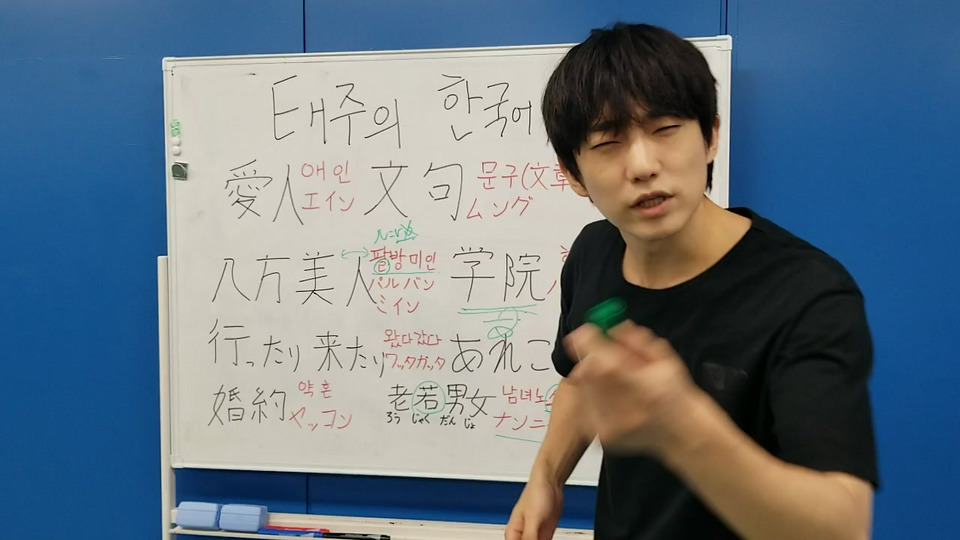 태주의 한국어
愛人 애인 文句 문구(文章
エイン ムング
八方美人 팔방미인 学院
パルバン
ミイン
行ったり来たり 왔다갔다 あれこ
ワッタガッタ
婚約 약혼 老若男女 남녀노
ヤッコン ろうじゃくだんじょ ナンニ